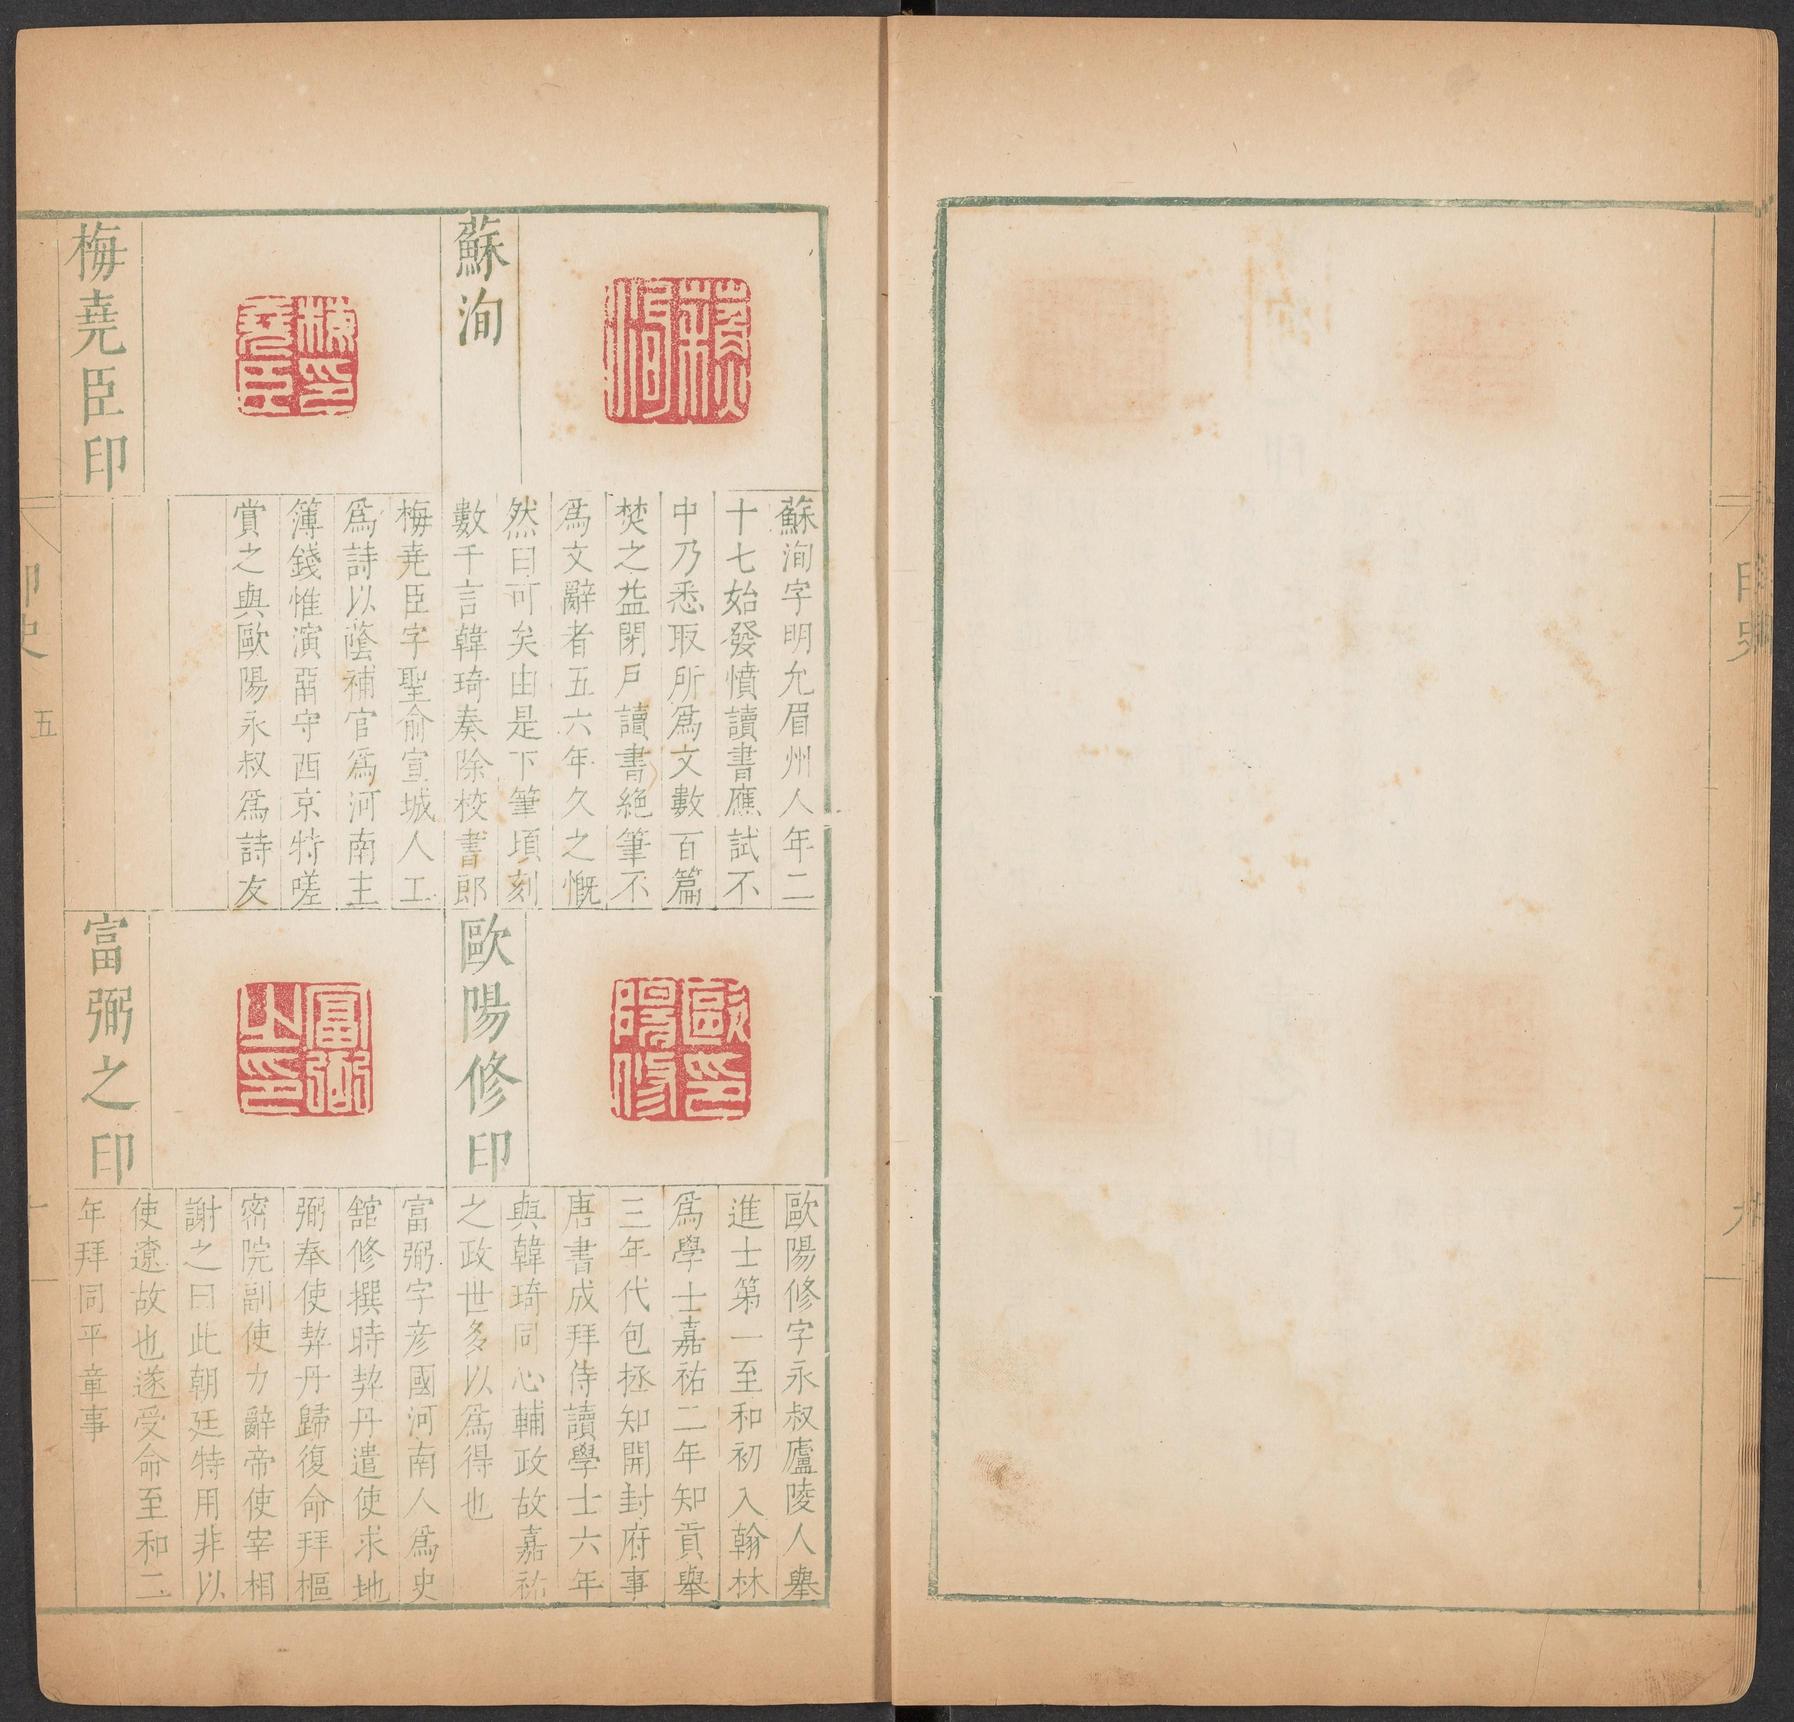 印史
蘇洵
蘇洵
蘇洵字明允眉州人年二
十七始發憤讀書應試不
中乃悉取所爲文數百篇
焚之益閉戶讀書絶筆不
爲文辭者五六年久之慨
然曰可矣由是下筆頃刻
數千言韓琦奏除校書郎
梅堯臣印
梅堯臣印
梅堯臣字聖俞宣城人工
爲詩以蔭補官爲河南主
簿錢惟演畱守西京特嗟
賞之與歐陽永叔爲詩友
歐陽修印
歐陽修印
歐陽修字永叔廬陵人舉
進士第一至和初入翰林
爲學士嘉祐二年知貢舉
三年代包拯知開封府事
唐書成拜侍讀學士六年
與韓琦同心輔政故嘉祐
之政世多以爲得也
富弼之印
富弼之印
富弼字彥國河南人爲史
舘修撰時契丹遣使求地
弼奉使契丹歸復命拜樞
密院副使力辭帝使宰相
謝之曰此朝廷特用非以
使遼故也遂受命至和二
年拜同平章事
印史 五